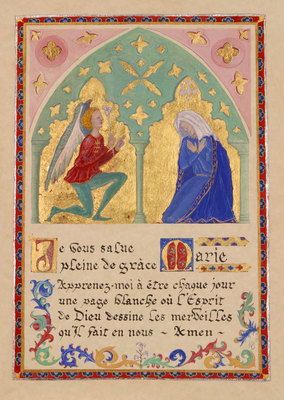 Je vous salue Marie
pleine de grâce
Apprenez-moi à être chaque jour
une page blanche où l'Esprit
de Dieu dessine les merveilles
qu'Il fait en nous ~ Amen ~